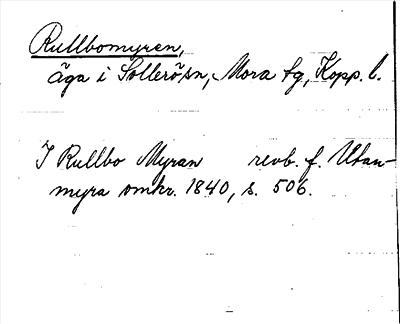 Rullbomyren,
äga i Sollerö sn, Mora tg, Kopp. l.
I Rullbo Myran revb. f. Utan-
myra omkr. 1840, s. 506.